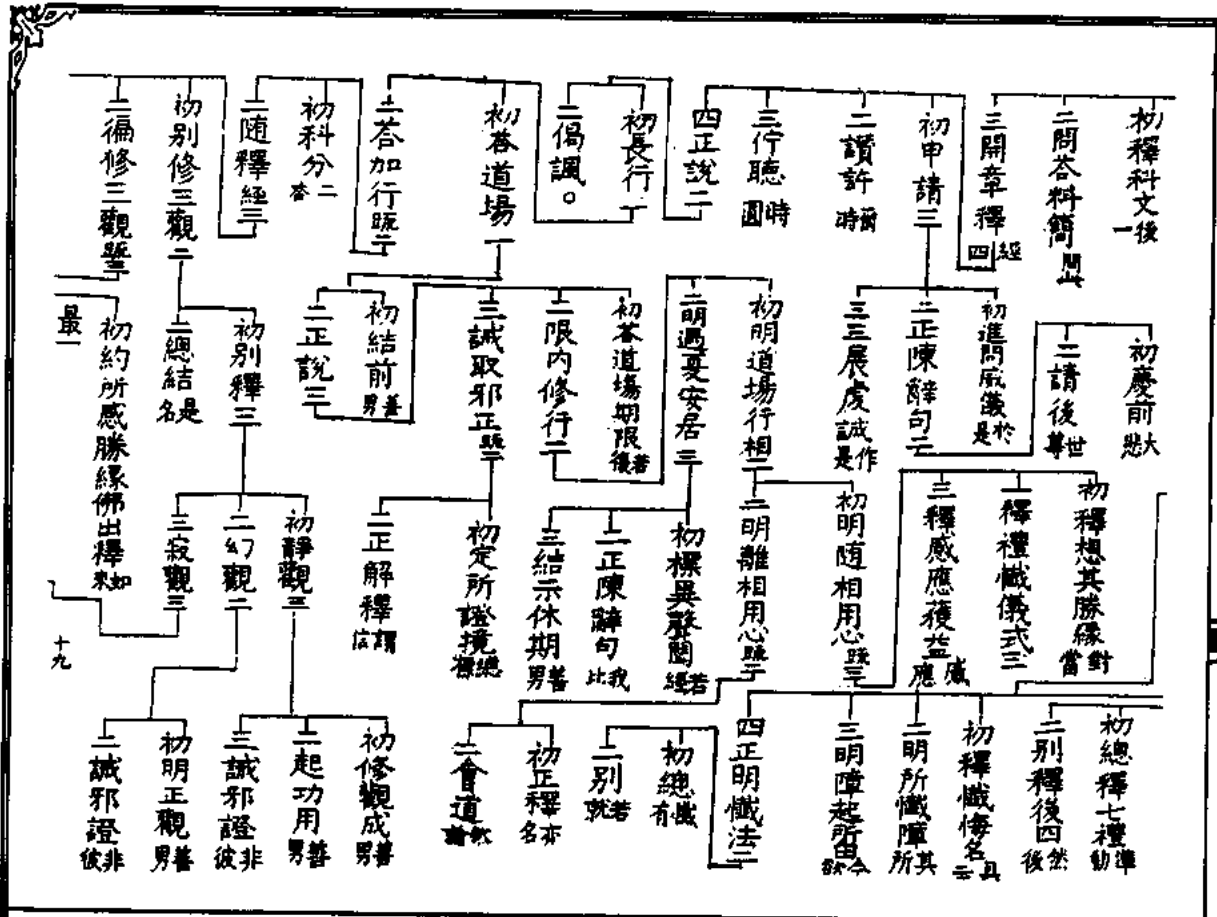 初釋科文後一
二問答料簡問此
三開章釋經四
初申請三
二讚許爾時
三佇聽時圓
四正說二
初長行一
二偈諷。
初荅道場一
二荅加行䟽二
初科分二荅
二随釋經三
初別修三觀二
二徧修三觀䟽三
初慶前大悲
二請後世尊
初進問威儀於是
二正陳辭句二
三三展虔誠作是
初明道場行相二
二明遇夏安居三
初荅道場期限若復
二限內修行二
三誡取邪正䟽二
初結前善男
二正說三
初別釋三
二總結是名
初約所感勝緣佛出釋如來
最一
初釋想其勝緣對當
二釋禮懺儀式三
三釋感應獲益感應
初明随相用心䟽三
二明離相用心䟽二
初標異聲聞若經
二正陳辭句我比
三結示休期善男
初定所證境總標
二正解釋謂信
初靜觀三
二幻觀二
三寂觀三
初總釋七禮準勤
二別釋後四然後
初釋懺悔名且云
二明所懺障其所
三明障起所由今欲
四正明懺法二
初總懺有
二別若就
初正釋亦名
二會道
初修觀成善男
二起功用善男
三誡邪證非彼
初明正觀善男
二誡邪證非彼
十九